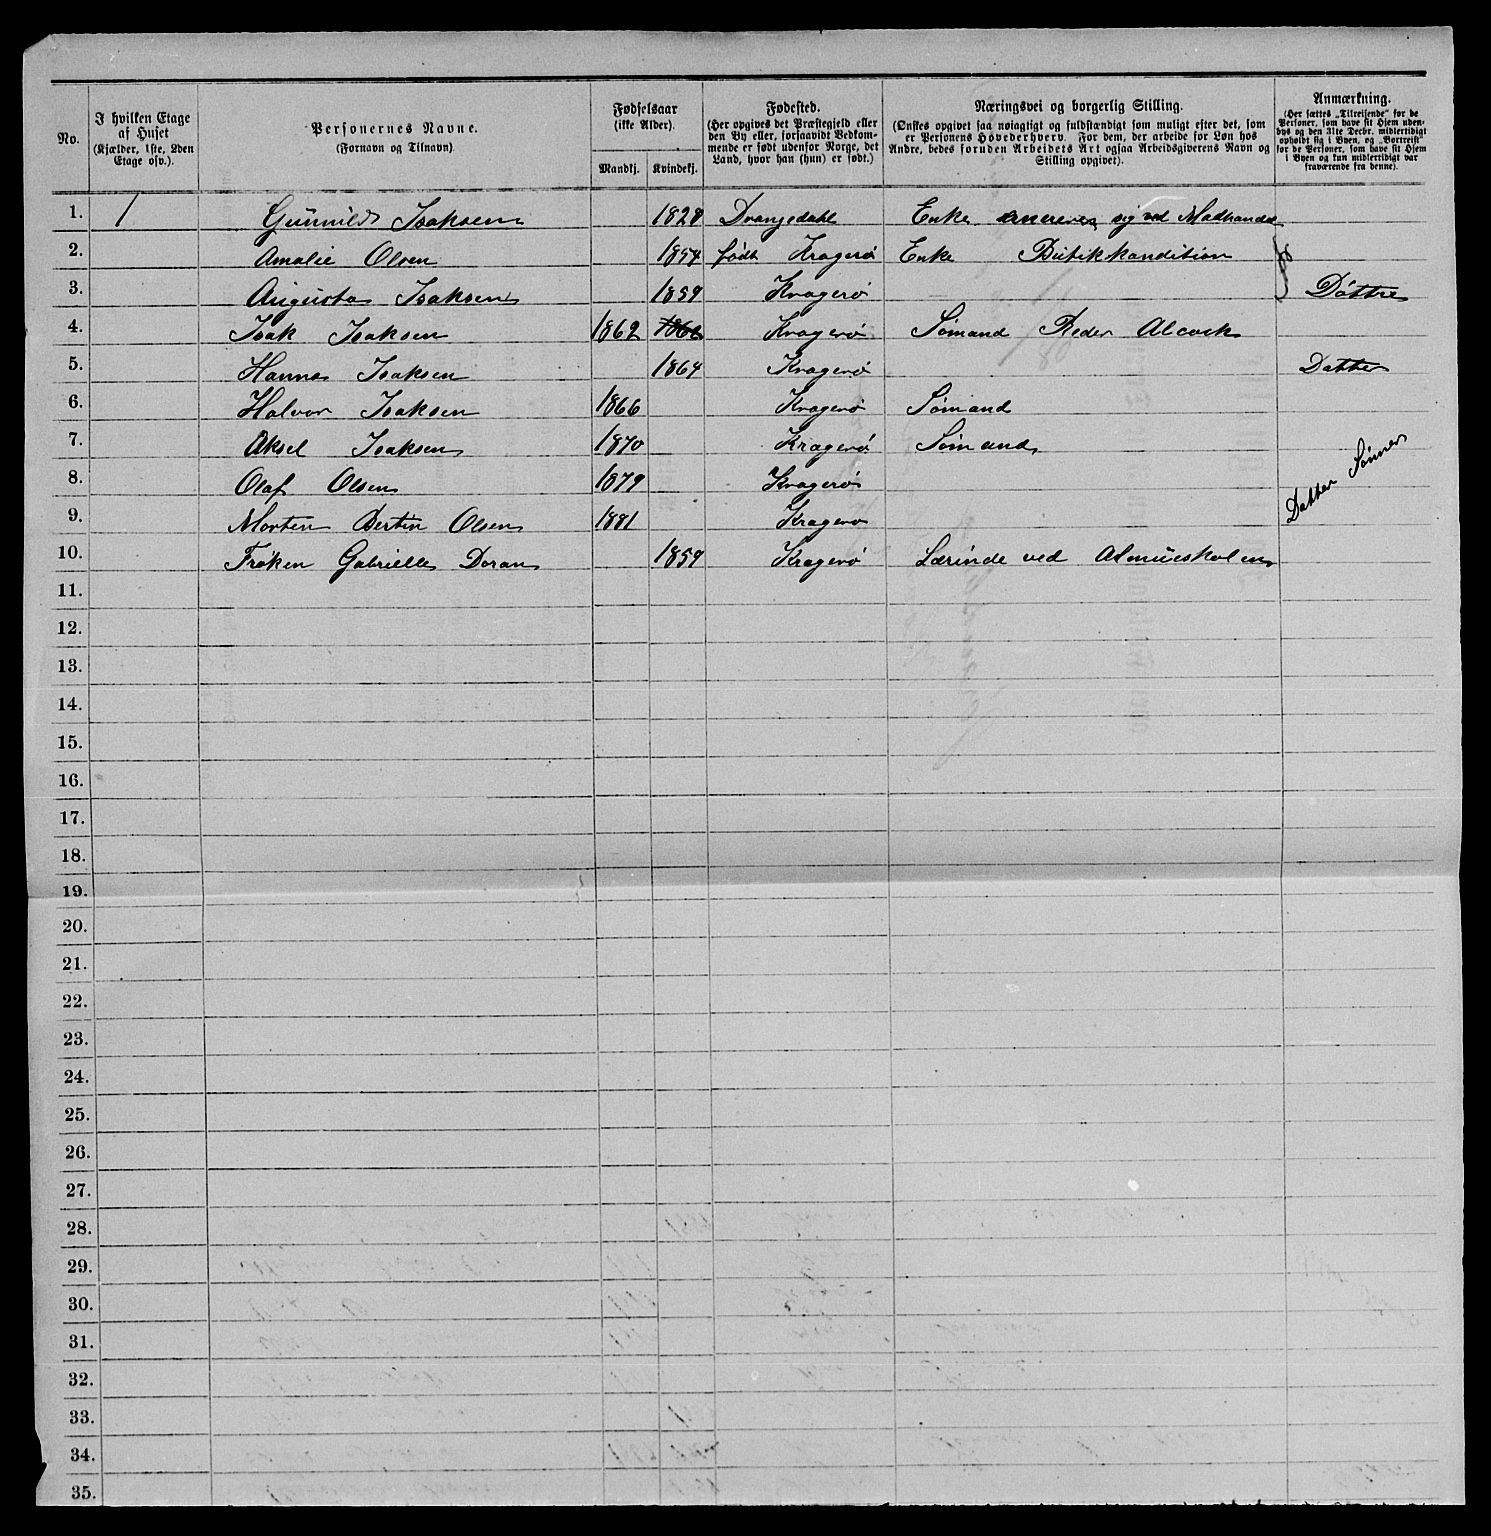 No.
I hvilken Etage af Huset (Kjælder, 1ste, 2den Etage osv.).
Personernes Navne. (Fornavn og Tilnavn)
Fødselsaar (ikke Alder).
Mandkj. Kvindekj.
Fødested. (Her opgives det Præstegjeld eller den By eller, forsaavidt Vedkommende er født udenfor Norge, det Land, hvor han (hun) er født.)
Næringsvei og borgerlig Stilling. (Ønskes opgivet saa nøiagtigt og fuldstændigt som muligt efter det, som er Personens Hovederhverv. For dem, der arbeide for Løn hos Andre, bedes foruden Arbeidets Art ogsaa Arbeidsgiverens Navn og Stilling opgivet).
Anmærkning. (Her sættes „Tilreisende" for de Personer, som have sit Hjem udenbys og den 31te Decbr. midlertidigt opholdt sig i Byen, og „Bortreist" for de Personer, som have sit Hjem i Byen og kun midlertidigt var fraværende fra denne).
1. 1 Gunnild Isaksen 1828 Drangedahl Enke ernerer sig ved Madhandel
2. Amalie Olsen 1854 født Kragerø Enke Butikkondition
3. Augusta Isaksen 1859 Kragerø Døttre
4. Isak Isaksen 1862 1862 Kragerø Sømand Reder Alcock
5. Hanna Isaksen 1864 Kragerø Datter
6. Halvor Isaksen 1866 Kragerø Sømand
7. Aksel Isaksen 1870 Kragerø Sømand
8. Olaf Olsen 1879 Kragerø Datter Sønner
9. Morten Bertin Olsen 1881 Kragerø
10. Frøken Gabrielle Doran 1859 Kragerø Lærinde ved Almueskolen
11.
12.
13.
14.
15.
16.
17.
18.
19.
20.
21.
22.
23.
24.
25.
26.
27.
28.
29.
30.
31.
32.
33.
34.
35.